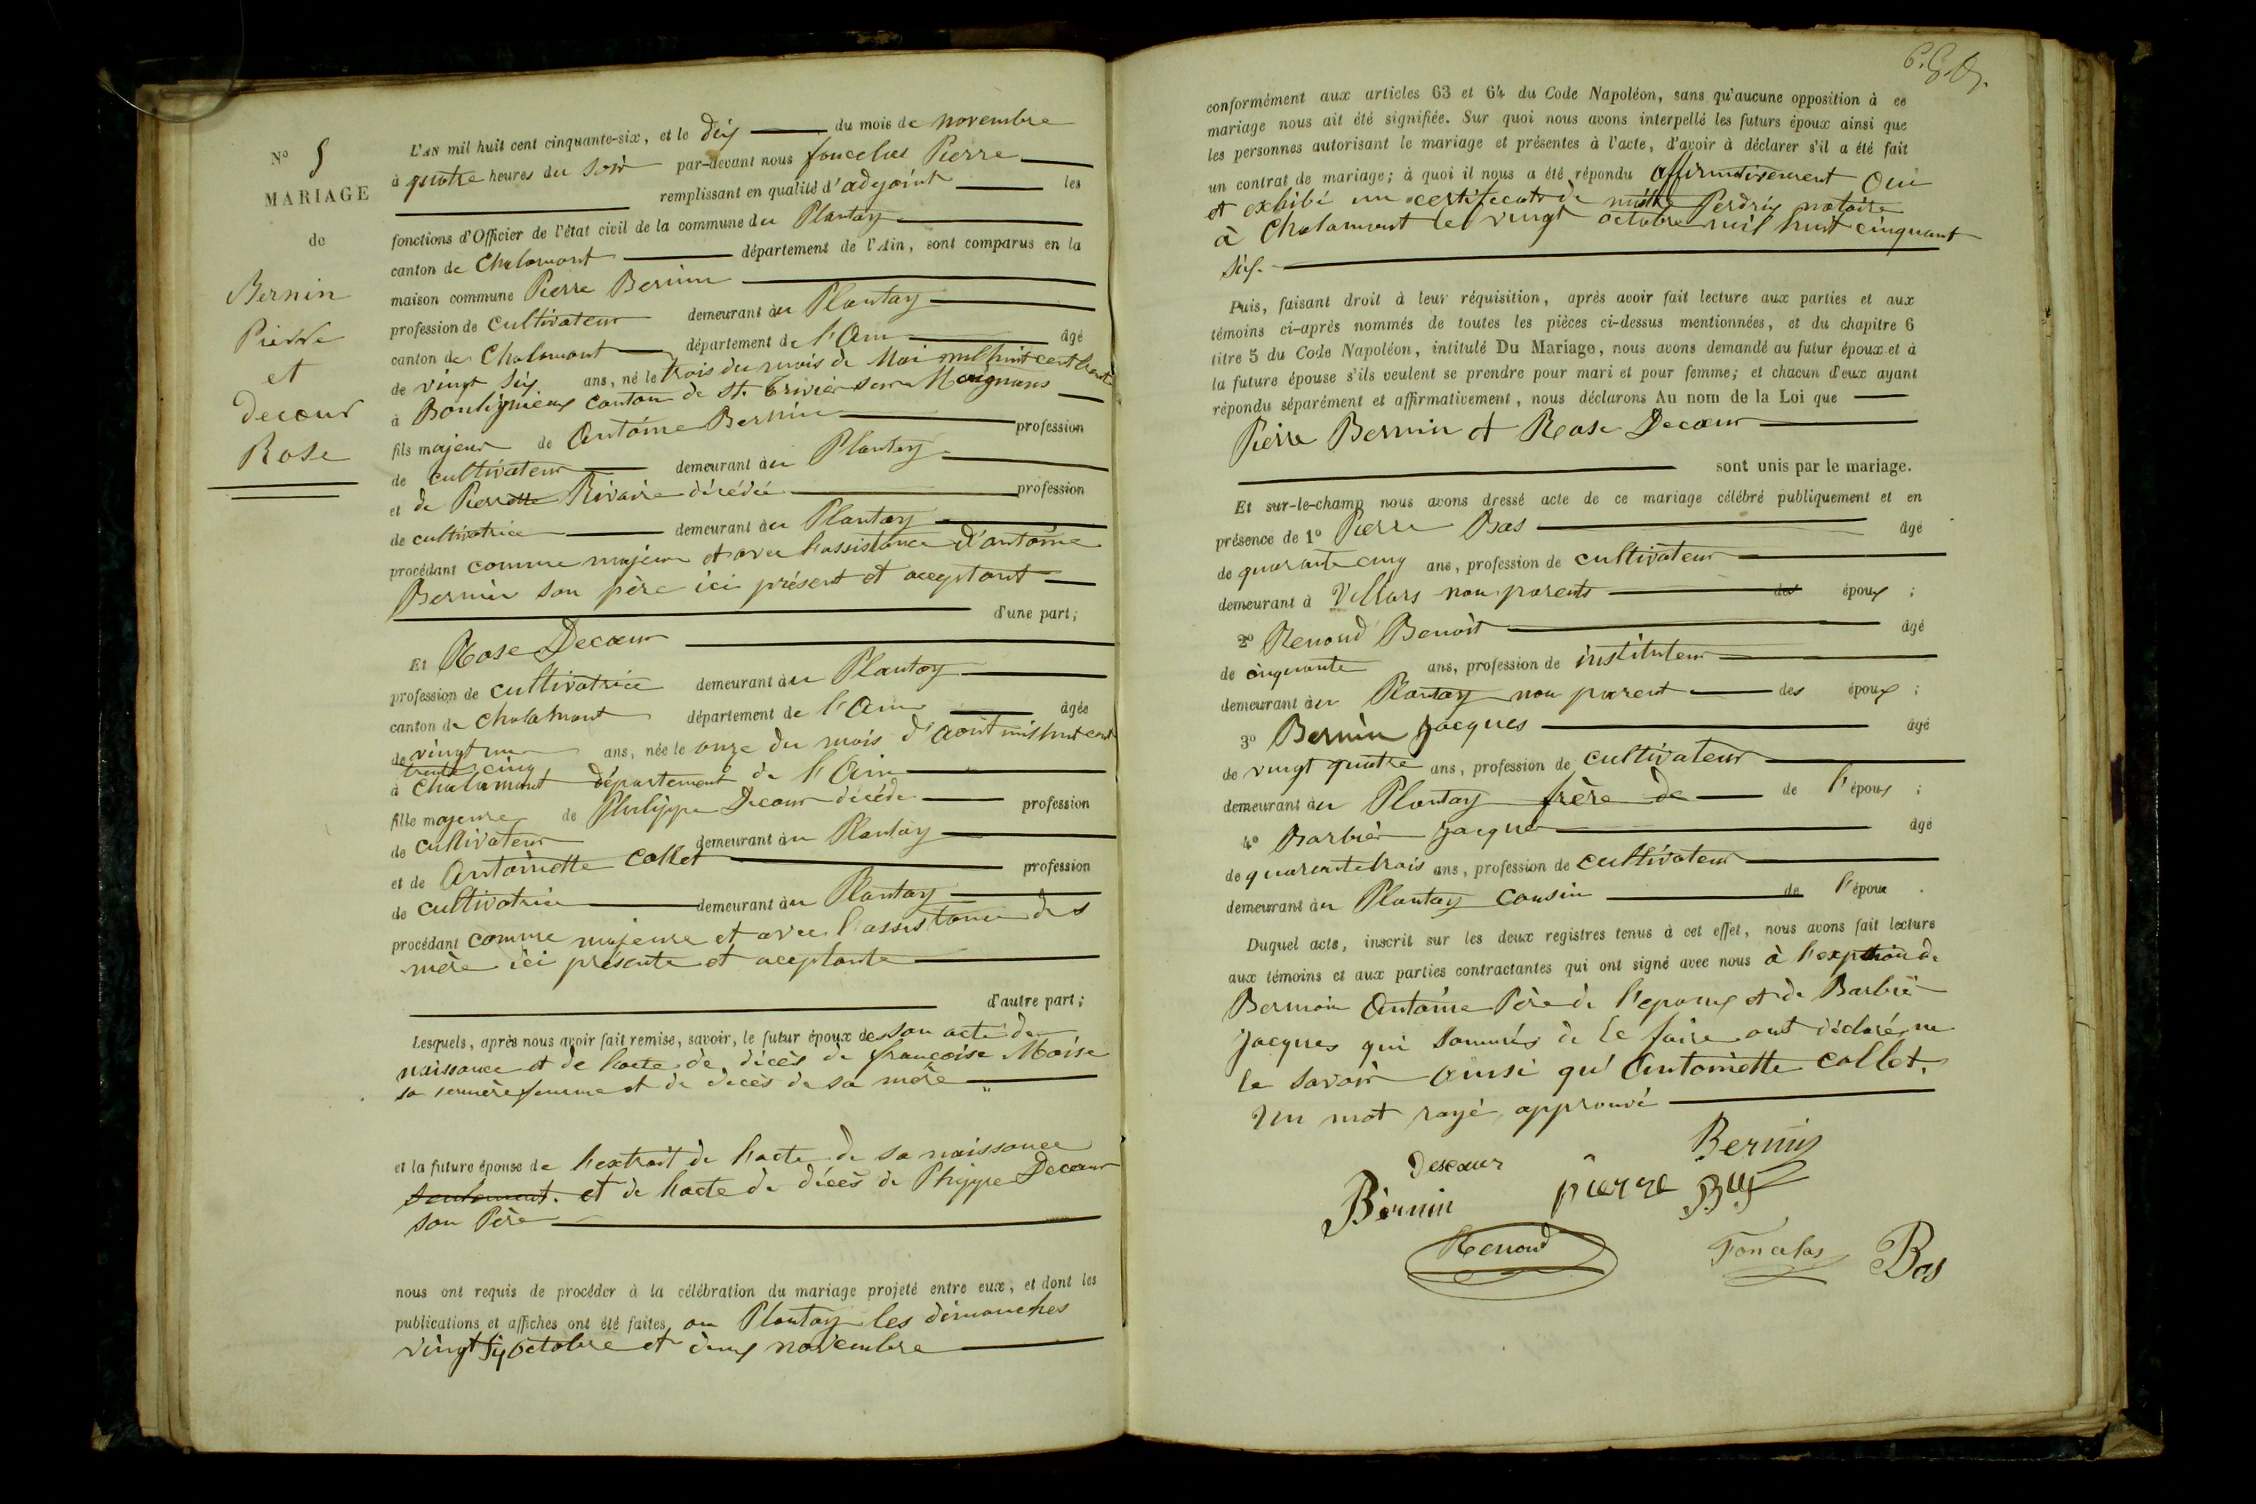 N° 5
MARIAGE
de
Bernin
Pierre
et
Decœur
Rose
L'AN mil huit cent cinquante-six, et le dix du mois de novembre
à quatre heures du soir par-devant nous Pierre
remplissant en qualité d'adjoint les
fonctions d'Officier de l'état civil de la commune du Plantay
canton de Chalamont département de l'Ain, sont comparus en la
maison commune Pierre Bernin
profession de cultivateur demeurant au Plantay
canton de Chalamont département de l'Ain âgé
de vingt six ans, né le trois du mois de Mai mil huit cent trente
à Bouligneux canton de St. Trivier sur Moignans
fils majeur de Antoine Bernin profession
de cultivateur demeurant au Plantay
et de Pierrette Rivoire décédée profession
de cultivatrice demeurant au Plantay
procédant comme majeur et avec l'assistance d'antoine
Bernin son père ici présent et acceptant
d'une part;
Et Rose Decœur
profession de cultivatrice demeurant au Plantay
canton de chalamont département de l'Ain âgée
de vingt un ans, née le onze du mois d'aout mil huit cent
trente cinq
à Chalamont département de l'Ain
fille majeure de Philippe Decœur décédé profession
de cultivateur demeurant au Plantay
et de Antoinette Collet profession
de cultivatrice demeurant au Plantay
procédant comme majeure et avec l'assistance de s
mère ici présente et aceptante
d'autre part;
Lesquels, après nous avoir fait remise, savoir, le futur époux de son acte de
naissance et de l'acte de décès de françoise Moise
sa femme et de décès de sa mère
et la future épouse de l'extrait de l'acte de sa naissance
seulement. et de l'acte de décès de Phippe Decœur
son Père
nous ont requis de procéder à la célébration du mariage projeté entre eux, et dont les
publications et affiches ont été faites au Plantay les dimanches
vingt six octobre et deux novembre
conformément aux articles 63 et 64 du Code Napoléon, sans qu'aucune opposition à ce
mariage nous ait été signifiée. Sur quoi nous avons interpellé les futurs époux ainsi que
les personnes autorisant le mariage et présentes à l'acte, d'avoir à déclarer s'il a été fait
un contrat de mariage; à quoi il nous a été répondu affirmativement Oui
et exhibé un certificat de Perdrix notaire
à Chalamont le vingt octobre mil huit cinquant
six.
Puis, faisant droit à leur réquisition, après avoir fait lecture aux parties et aux
témoins ci-après nommés de toutes les pièces ci-dessus mentionnées, et du chapitre 6
titre 5 du Code Napoléon, intitulé Du Mariage, nous avons demandé au futur époux et à
la future épouse s'ils veulent se prendre pour mari et pour femme; et chacun d'eux ayant
répondu séparément et affirmativement, nous déclarons Au nom de la Loi que
Pierre Bernin et Rose Decœur
sont unis par le mariage.
Et sur-le-champ nous avons dressé acte de ce mariage célébré publiquement et en
présence de 1° Pierre Bas âgé
de quarante cinq ans, profession de cultivateur
demeurant à Villars non parents des époux ;
2° Renoud Benoit âgé
de cinquante ans, profession de instituteur
demeurant au Plantay non parent des époux ;
3° Bernin Jacques âgé
de vingt quatre ans, profession de cultivateur
demeurant au Plantay frère de de l'époux ;
4° Barbier Jacques âgé
de quarante trois ans, profession de cultivateur
demeurant au Plantay cousin de l'époux .
Duquel acte, inscrit sur les deux registres tenus à cet effet, nous avons fait lecture
aux témoins et aux parties contractantes qui ont signé avec nous à de
Bernin Antoine Père de l'epoux et de Barbier
Jacques qui Sommés de le faire ont déclaré ne
le savoir ainsi qu'Antoinette Collet.
Un mot rayé approuvé
Bernin
Descœur
Bérnin pierre
Renoud Bas